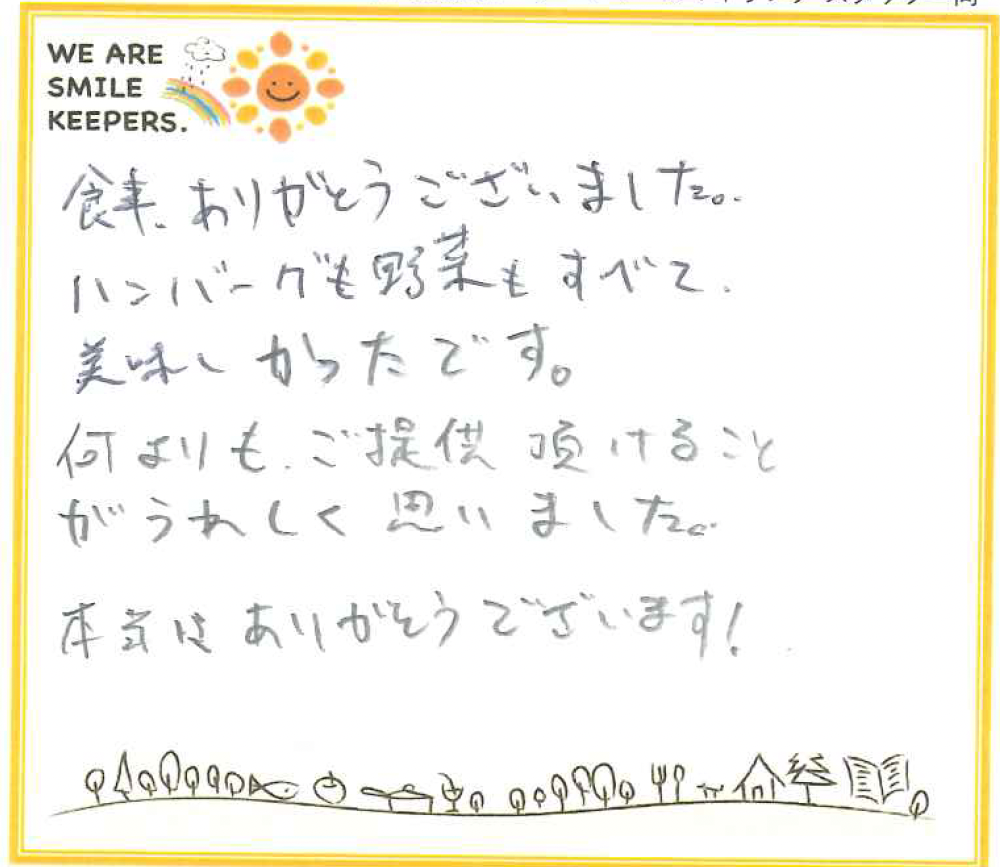 WE ARE
SMILE
KEEPERS.
食事、ありがとうございました。
ハンバーグも野菜もすべて、
美味しかったです。
何よりも、ご提供頂けること
がうれしく思いました。
ありがとうございます!